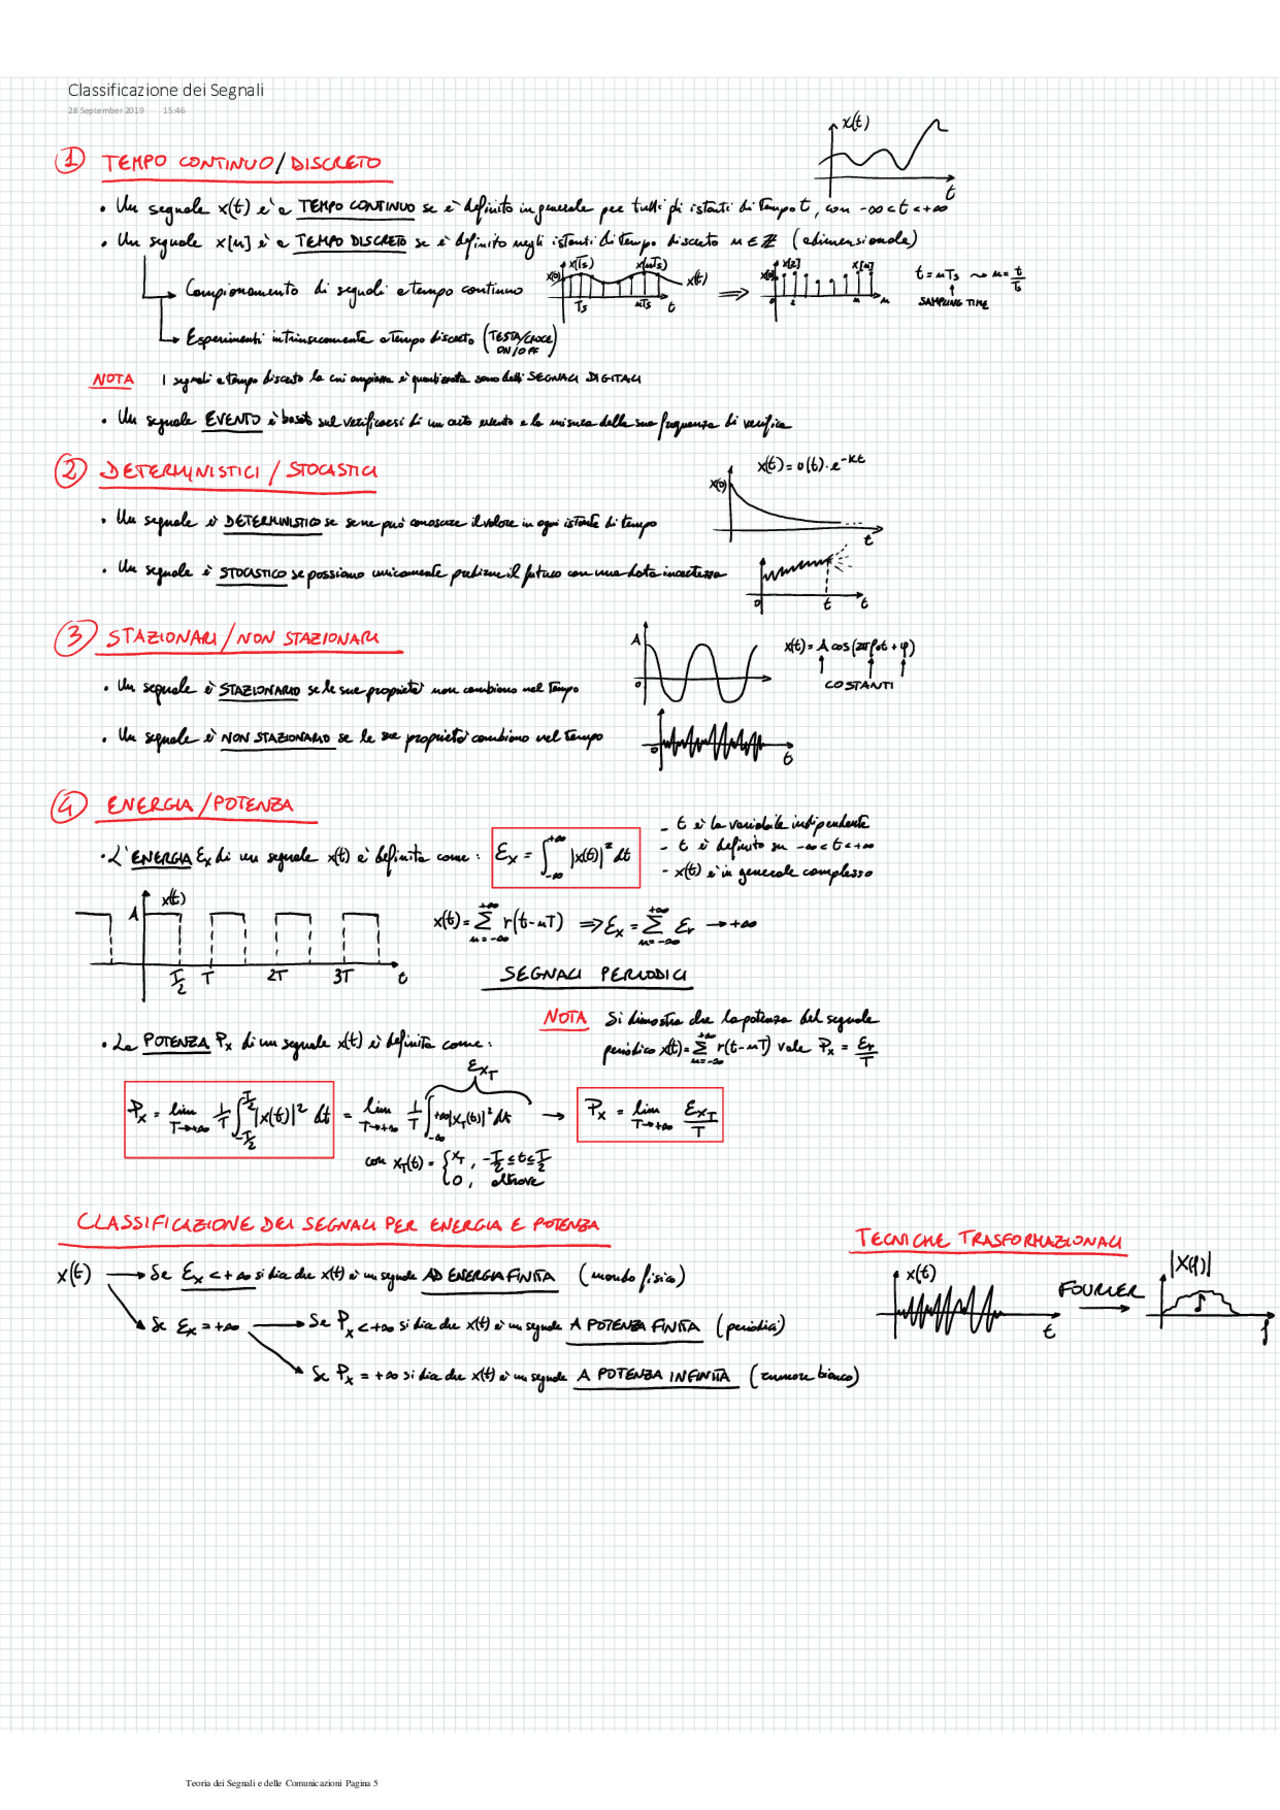 Classificazione dei Segnali
28 September 2019 15:46
x(t)
① TEMPO CONTINUO/DISCRETO
t
• Un segnale x(t) è a TEMPO CONTINUO se è definito in generale per tutti gli istanti di tempo t, con -∞<t<+∞
• Un segnale x[n] è a TEMPO DISCRETO se è definito negli istanti di tempo discreto n∈ℤ (adimensionale)
x(0) x(Ts) x(nTs) x(t) Ts nTs t ⇒ x[0] x[2] x[n] 0 2 n n
t = nTs ⤳ n = t/Ts
SAMPLING TIME
→ Campionamento di segnali a tempo continuo
→ Esperimenti intrinsecamente a tempo discreto (TESTA/CROCE ON/OFF)
NOTA I segnali a tempo discreto la cui ampiezza è quantizzata sono detti SEGNALI DIGITALI
• Un segnale EVENTO è basato sul verificarsi di un certo evento e la misura della sua frequenza di verifica
② DETERMINISTICI / STOCASTICI
x(t) = u(t)·e^-kt
x(0) t
• Un segnale è DETERMINISTICO se se ne può conoscere il valore in ogni istante di tempo
• Un segnale è STOCASTICO se possiamo unicamente predirne il futuro con una data incertezza
0 t t
③ STAZIONARI / NON STAZIONARI
A 0
x(t) = A cos(2πf₀t + φ)
COSTANTI
• Un segnale è STAZIONARIO se le sue proprietà non cambiano nel tempo
• Un segnale è NON STAZIONARIO se le sue proprietà cambiano nel tempo
0 t
④ ENERGIA / POTENZA
• L'ENERGIA Ex di un segnale x(t) è definita come: Ex = ∫_-∞^+∞ |x(t)|² dt
- t è la variabile indipendente
- t è definito su -∞<t<+∞
- x(t) è in generale complesso
A x(t) T/2 T 2T 3T t
x(t) = Σ_{n=-∞}^{+∞} r(t-nT) ⇒ Ex = Σ_{n=-∞}^{+∞} Er → +∞
SEGNALI PERIODICI
NOTA Si dimostra che la potenza del segnale
periodico x(t) = Σ_{n=-∞}^{+∞} r(t-nT) vale Px = Er/T
• La POTENZA Px di un segnale x(t) è definita come:
Px = lim_{T→+∞} 1/T ∫_{-T/2}^{T/2} |x(t)|² dt = lim_{T→+∞} 1/T ∫_{-∞}^{+∞} |xT(t)|² dt → Px = lim_{T→+∞} ExT/T
ExT
con xT(t) = { xT, -T/2 ≤ t ≤ T/2
0, altrove
CLASSIFICAZIONE DEI SEGNALI PER ENERGIA E POTENZA
x(t) → Se Ex < +∞ si dice che x(t) è un segnale AD ENERGIA FINITA (mondo fisico)
Se Ex = +∞ → Se Px < +∞ si dice che x(t) è un segnale A POTENZA FINITA (periodici)
Se Px = +∞ si dice che x(t) è un segnale A POTENZA INFINITA (rumore bianco)
TECNICHE TRASFORMAZIONALI
x(t) t FOURIER → |X(f)| f
Teoria dei Segnali e delle Comunicazioni Pagina 5